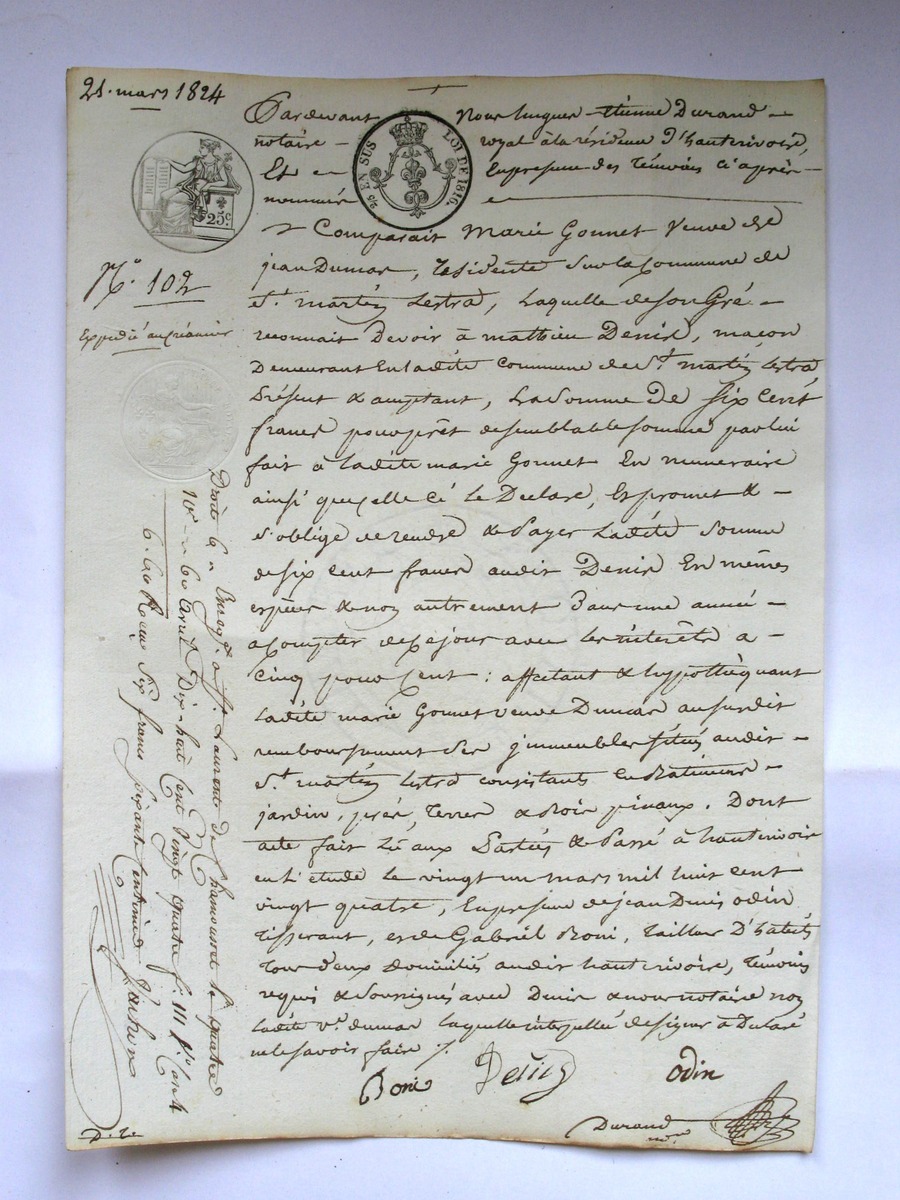 21. mars 1824
Pardevant Nous hugues étienne Durand
notaire royal à la résidence d'hauterivoire,
Et En presence des témoins ci après
nommés
25 EN SUS LOI DE 1816.
25c.
N.° 102
Expédié au créancier
Comparait Marie Gonnet Veuve de
jean Dumas, residente sur la Commune de
St. martin Lestra, Laquelle de son Gré
reconnait Devoir à mathieu Denis, maçon
Demeurant En ladite Commune de St. martin Lestra
Présent & acceptant, La Somme De Six Cent
francs pour prêt de semblable somme par lui
fait à ladite marie Gonnet En numeraire
ainsi qu'elle Le Declare, Et promet &
s'oblige de rendre & de Payer Ladite Somme
de six Cent francs audit Denis En mêmes
espèces & non autrement Dans une année
a compter de ce jour avec les interêts a
Cinq pour Cent : affectant & hypothèquant
Ladite marie Gonnet veuve Dumas au susdit
remboursement Ses jmmeubles situés audit
St. martin Lestra consistants En Batiments
jardin, prés, terres & Bois pinaux. Dont
acte fait Lû aux Parties & Passé à hauterivoire
en L'étude le vingt un mars mil huit cent
vingt quatre, En presence de jean Denis odin
tisserant, et de Gabriël Boni, tailleur D'habits
Tous deux Domiciliés audit hauterivoire, témoins
requis & Soussignés avec Denis & nous notaire non
Ladite Ve. dumas laquelle interpellée de signer à Declaré
ne le savoir faire /.
Boni Denis odin
Durand nre
Enregt. à St. Laurent de Chamousset le quatre
avril Dix-huit Cent Vingt quatre f.° 111
Reçu Six francs soixante Centimes